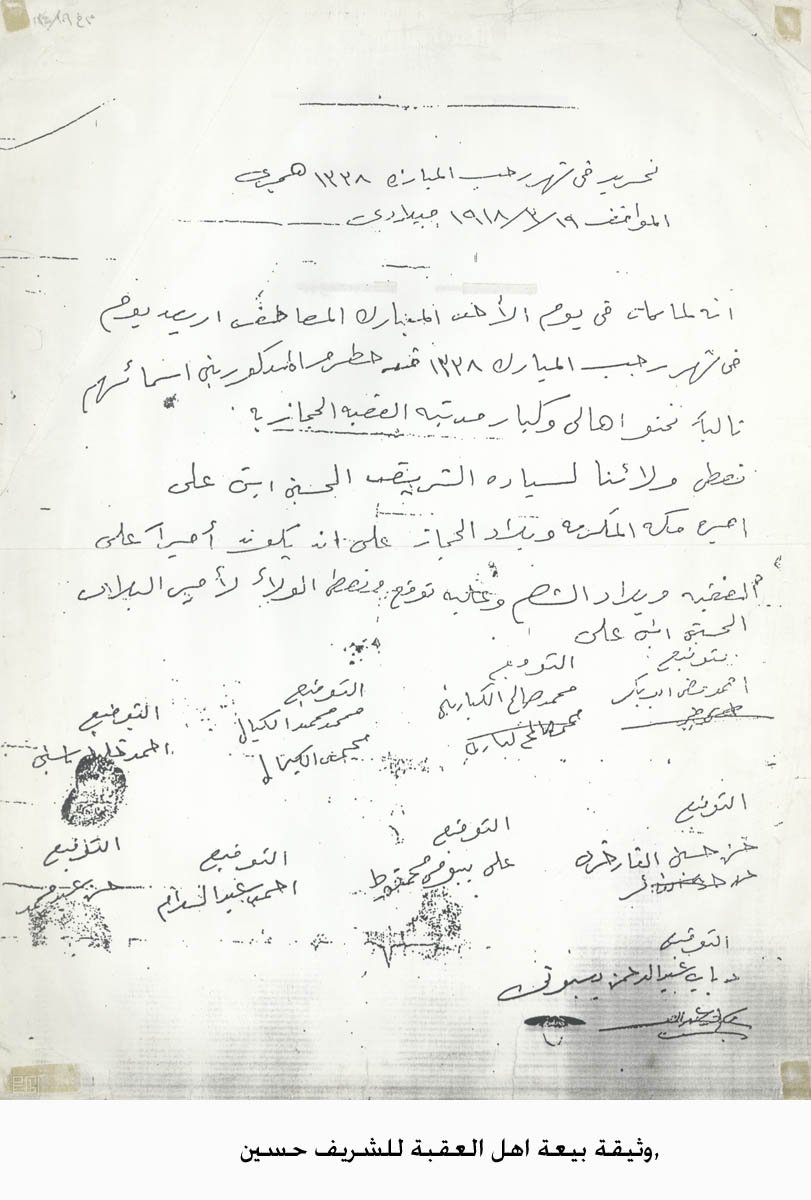 تحرير في شهر رجب المبارك ١٣٣٨ هجري
الموافق ١٩١٨/٣/١٩ ميلادي
انه لما كان في يوم الأحد المبارك المصادف اربعه يوم
في شهر رجب المبارك ١٣٣٨ قد حظر المذكورين اسمائهم
تالياً نحنو اهالي وكبار مدتبه العقبه الحجازيه
نعطي ولائنا لسياده الشريف الحسين ابن علي
امير مكه المكرمه وبلاد الحجاز على ان يكون أميراً على
العقبه وبلاد الشام وعليه نوقع ونعطي الولاء لأمير البلاد
الحسين ابن علي
التوقيع
محمد صالح الكباريتي
محمد صالح كباريتي
التوقيع
محمد محمد الكيال
محمد الكيال
التوقيع
احمد
التوقيع
حسن حسين
التوقيع
علي محمد
التوقيع
احمد عبد السلام
التوقيع
حسن محمد
التوقيع
دياب عبد الرحمن بسيوني
,وثيقة بيعة اهل العقبة للشريف حسين